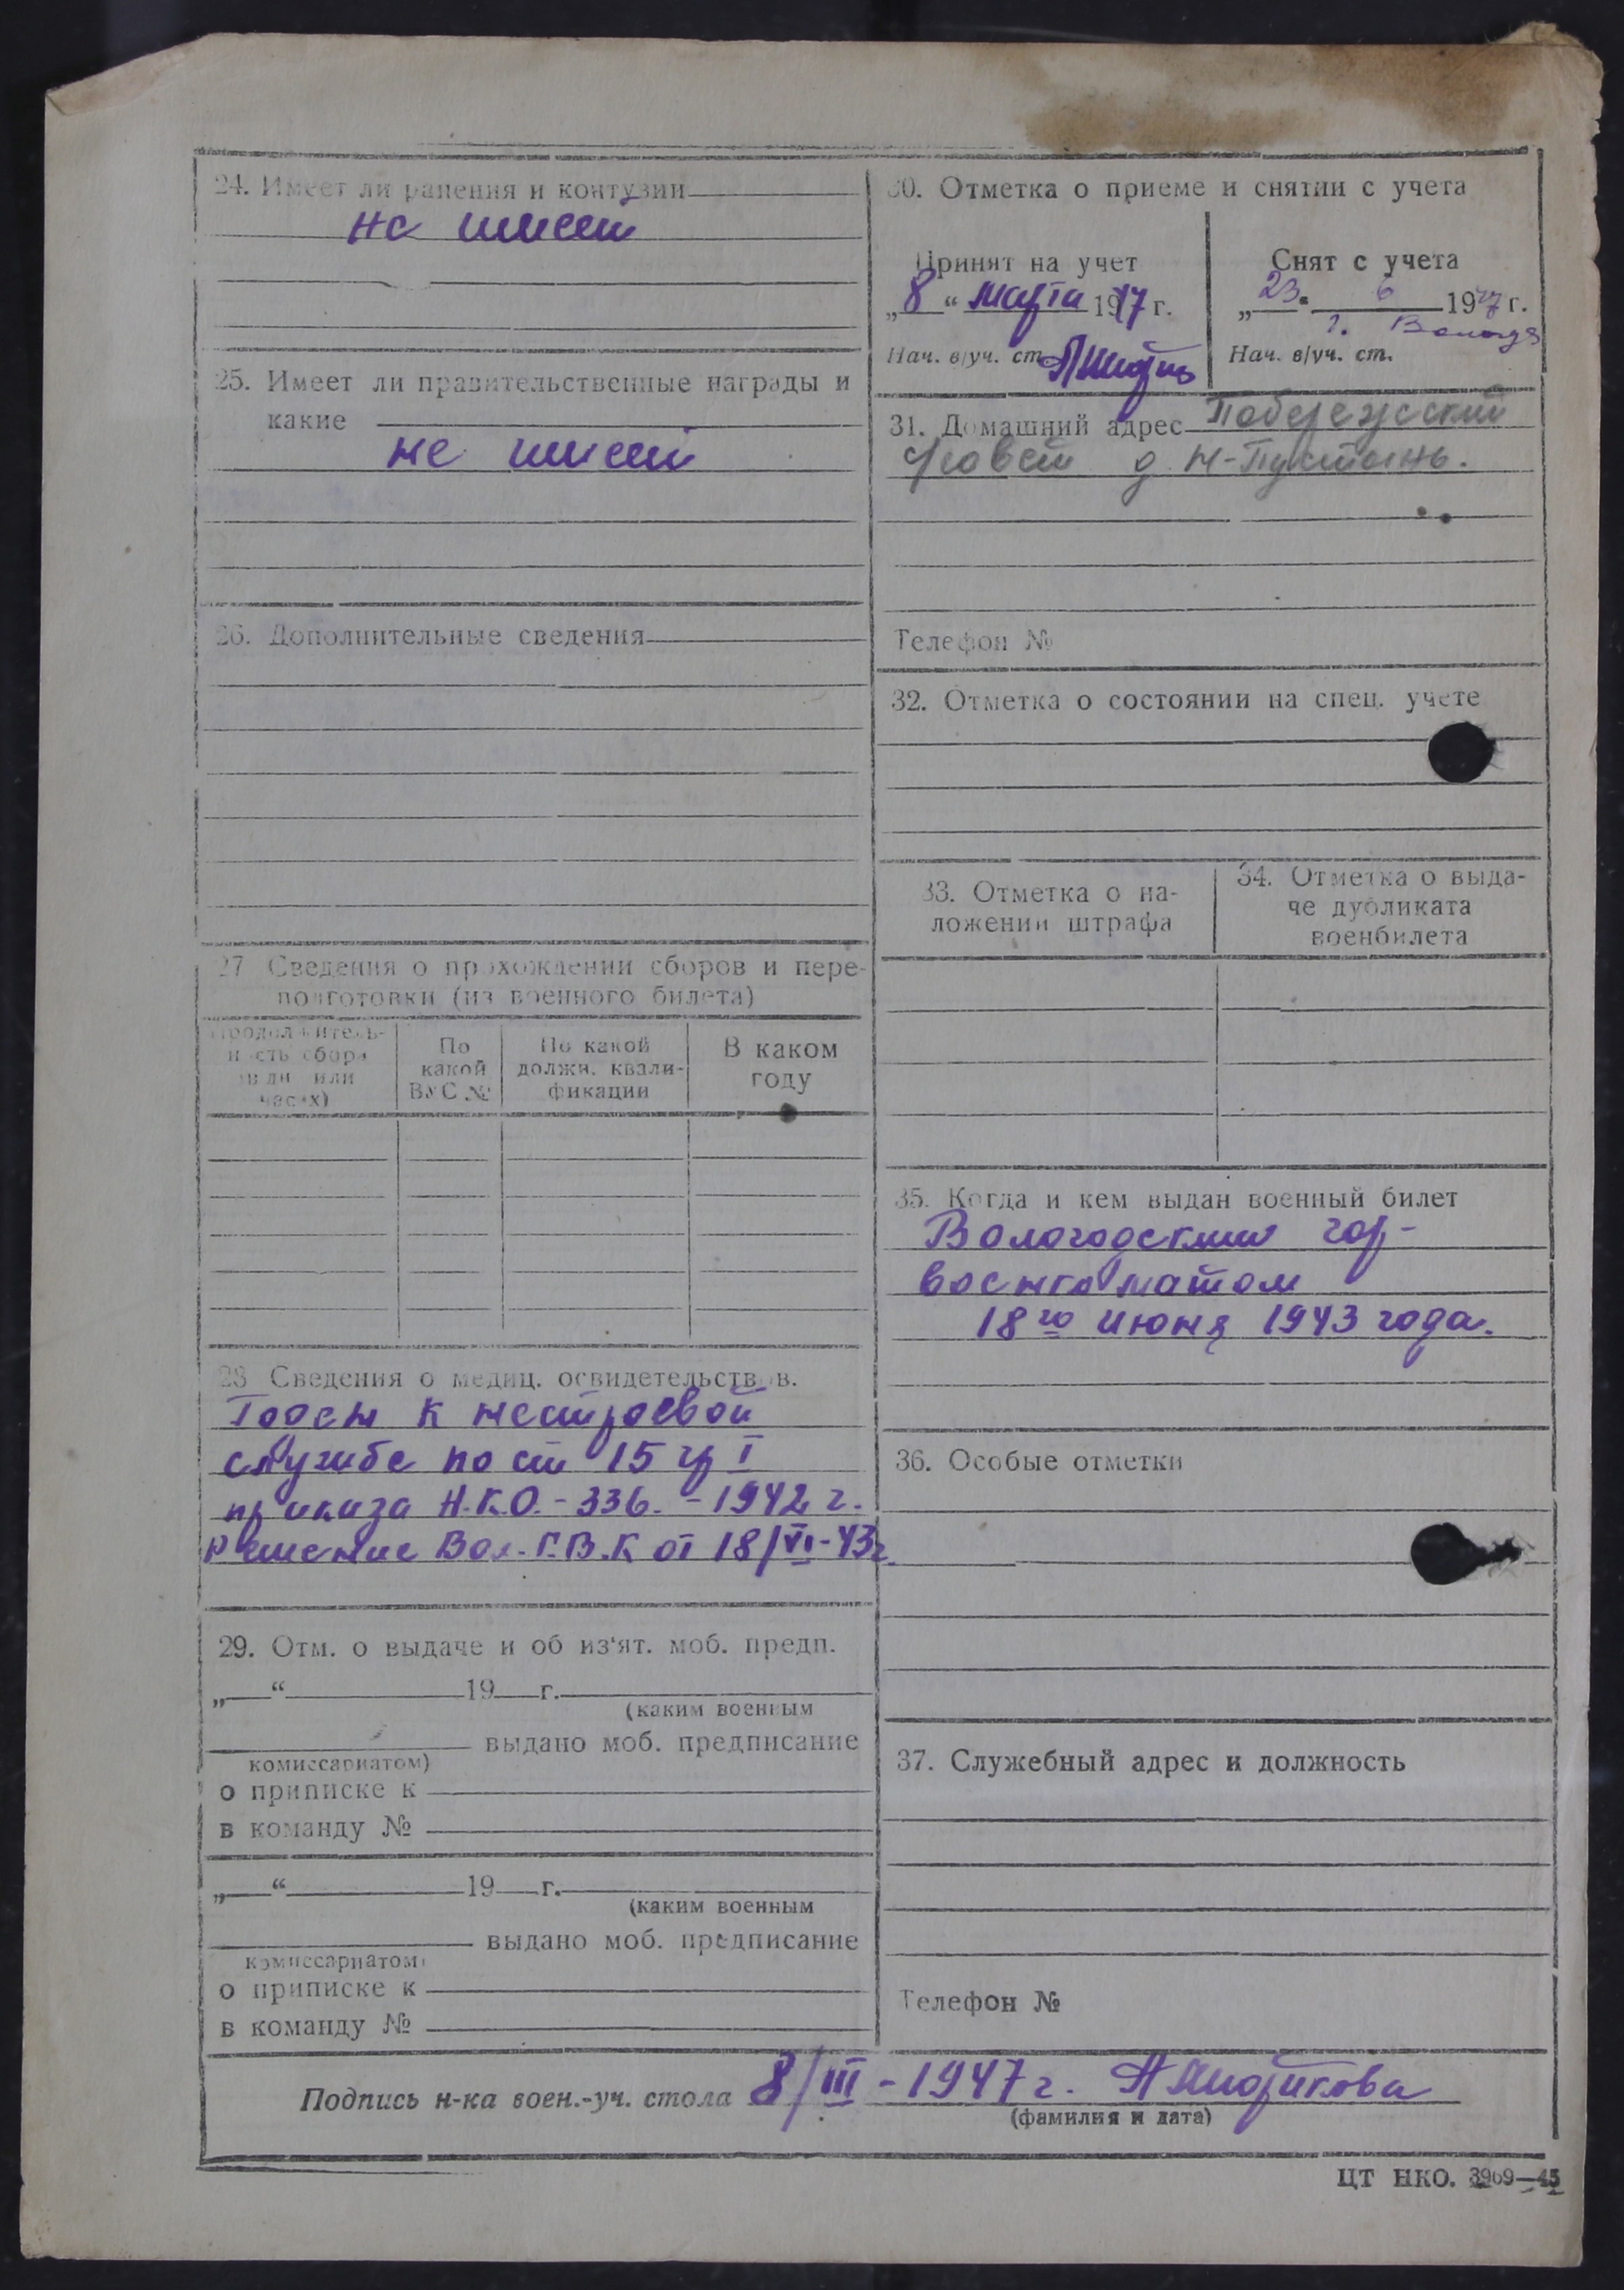 24. Имеет ли ранения и контузии
не имеет
25. Имеет ли правительственные награды и
какие
не имеет
26. Дополнительные сведения
27 Сведения о прохождении сборов и пере-
подготовки (из военного билета)
Продолжитель-
ность сбора
(в дн. или
часах)
По
какой
ВУС №
По какой
должн. квали-
фикации
В каком
году
28 Сведения о медиц. освидетельств в.
Годен к нестроевой
службе по ст 15 гр I
приказа Н.К.О. - 336. - 1942 г.
Решение Вол. Г.В.К от 18/VI-43г.
29. Отм. о выдаче и об из'ят. моб. предп.
„ “ 19 г.
(каким военным
выдано моб. предписание
комиссариатом)
о приписке к
в команду №
„ “ 19 г.
(каким военным
выдано моб. предписание
комиссариатом)
о приписке к
в команду №
30. Отметка о приеме и снятии с учета
Принят на учет
„8“ марта 1947 г.
Нач. в/уч. ст.
Снят с учета
„23“ 6 1947 г.
г. Вологда
Нач. в/уч. ст.
31. Домашний адрес
с/совет д. Н-Пустынь.
Телефон №
32. Отметка о состоянии на спец. учете
33. Отметка о на-
ложении штрафа
34. Отметка о выда-
че дубликата
военбилета
35. Когда и кем выдан военный билет
Вологодским гор-
военкоматом
18го июня 1943 года.
36. Особые отметки
37. Служебный адрес и должность
Телефон №
Подпись н-ка воен.-уч. стола 8/III - 1947 г.
(фамилия и дата)
ЦТ НКО. 3969—45